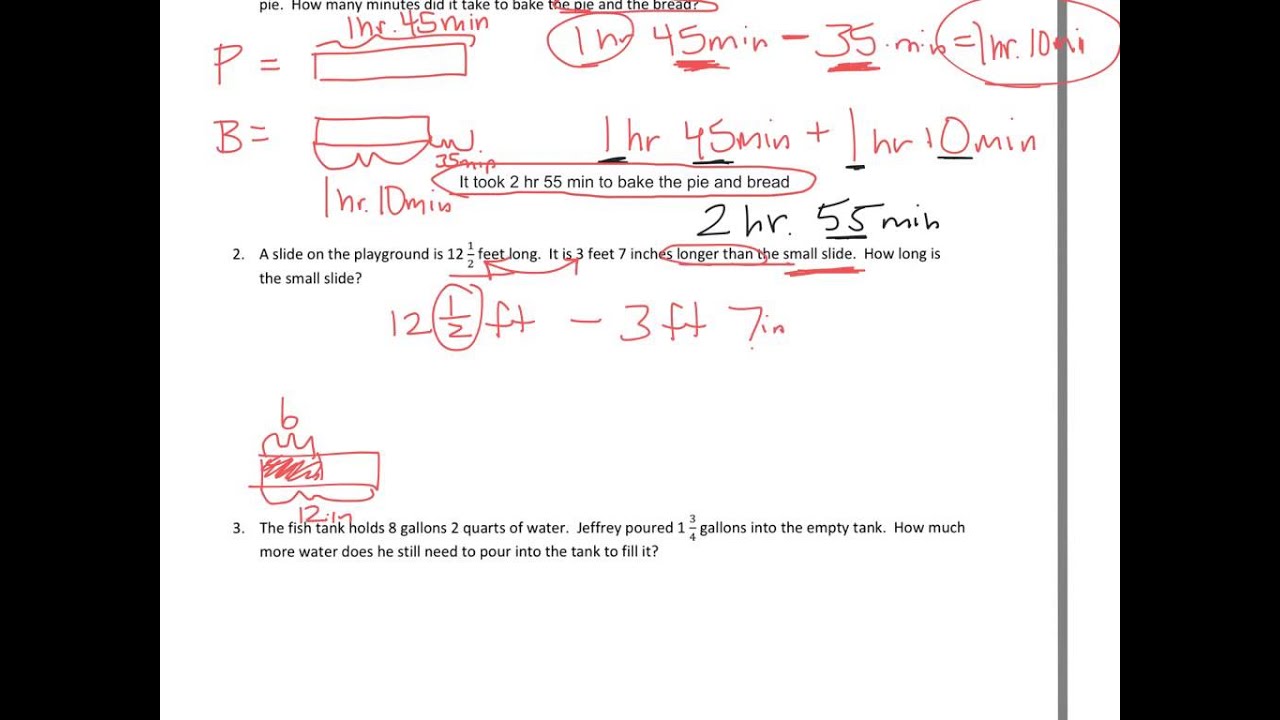 pie. How many minutes did it take to bake the pie and the bread?
1hr. 45min
P =
1 hr 45min - 35 min = 1hr. 10mi
B =
35min
1 hr 45min + 1 hr 10min
It took 2 hr 55 min to bake the pie and bread
1hr. 10min
2 hr. 55 min
2. A slide on the playground is 12 1/2 feet long. It is 3 feet 7 inches longer than the small slide. How long is
the small slide?
12 1/2 ft - 3 ft 7in
6
12in
3. The fish tank holds 8 gallons 2 quarts of water. Jeffrey poured 1 3/4 gallons into the empty tank. How much
more water does he still need to pour into the tank to fill it?